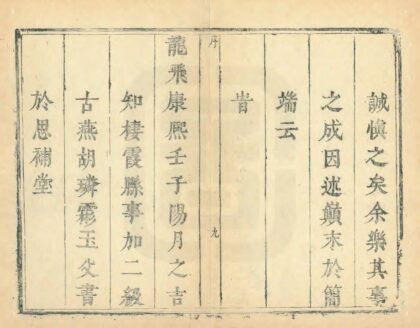 誠慎之矣余樂其事
之成因述巔末於簡
端云
旹
序
九
龍飛康熙壬子陽月之吉
知棲霞縣事加二級
古燕胡璘霦玉父書
於思補堂